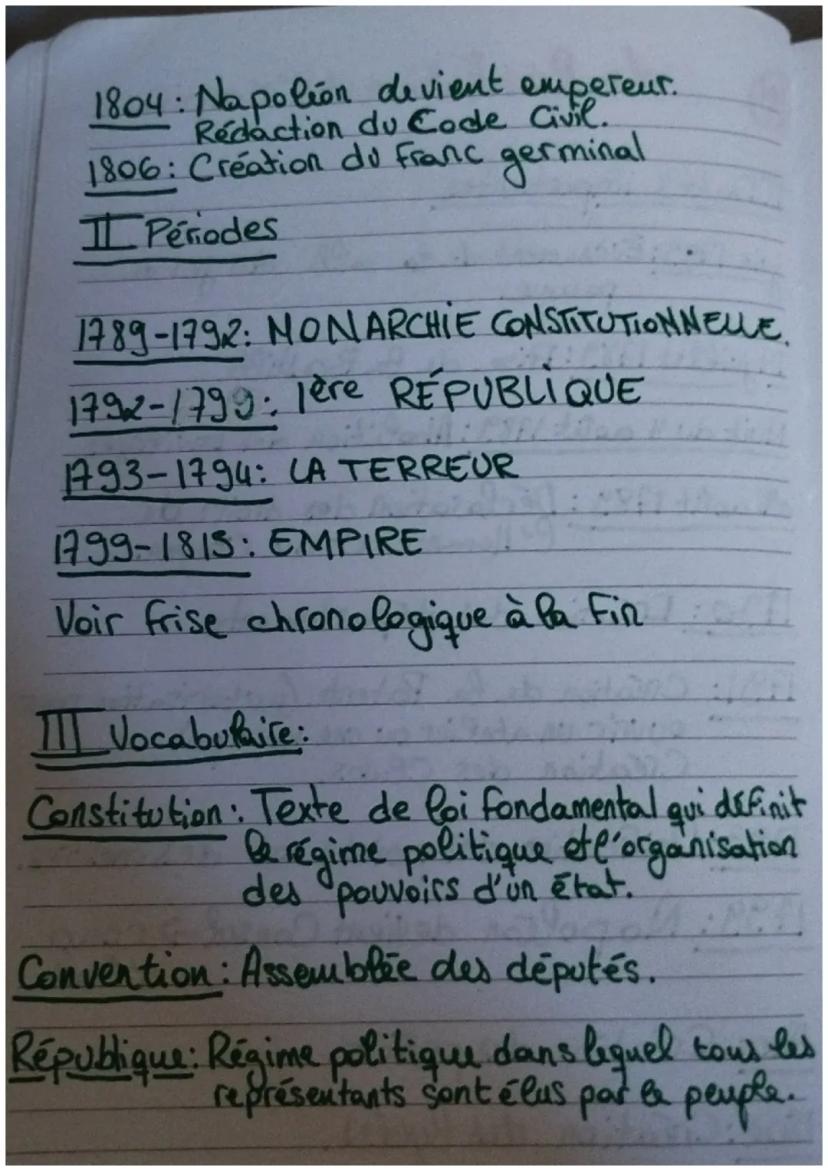 1804: Napoléon devient empereur.
Rédaction du Code Civil.
1806: Création du Franc germinal
II Périodes
1789-1792: MONARCHIE CONSTITUTIONNELLE.
1792-1799: 1ère RÉPUBLIQUE
1793-1794: LA TERREUR
1799-1815: EMPIRE
Voir frise chronologique à la Fin
III Vocabulaire:
Constitution: Texte de loi fondamental qui définit
le régime politique et l'organisation
des pouvoirs d'un état.
Convention: Assemblée des députés.
République: Régime politique dans lequel tous les
représentants sont élus par le peuple.